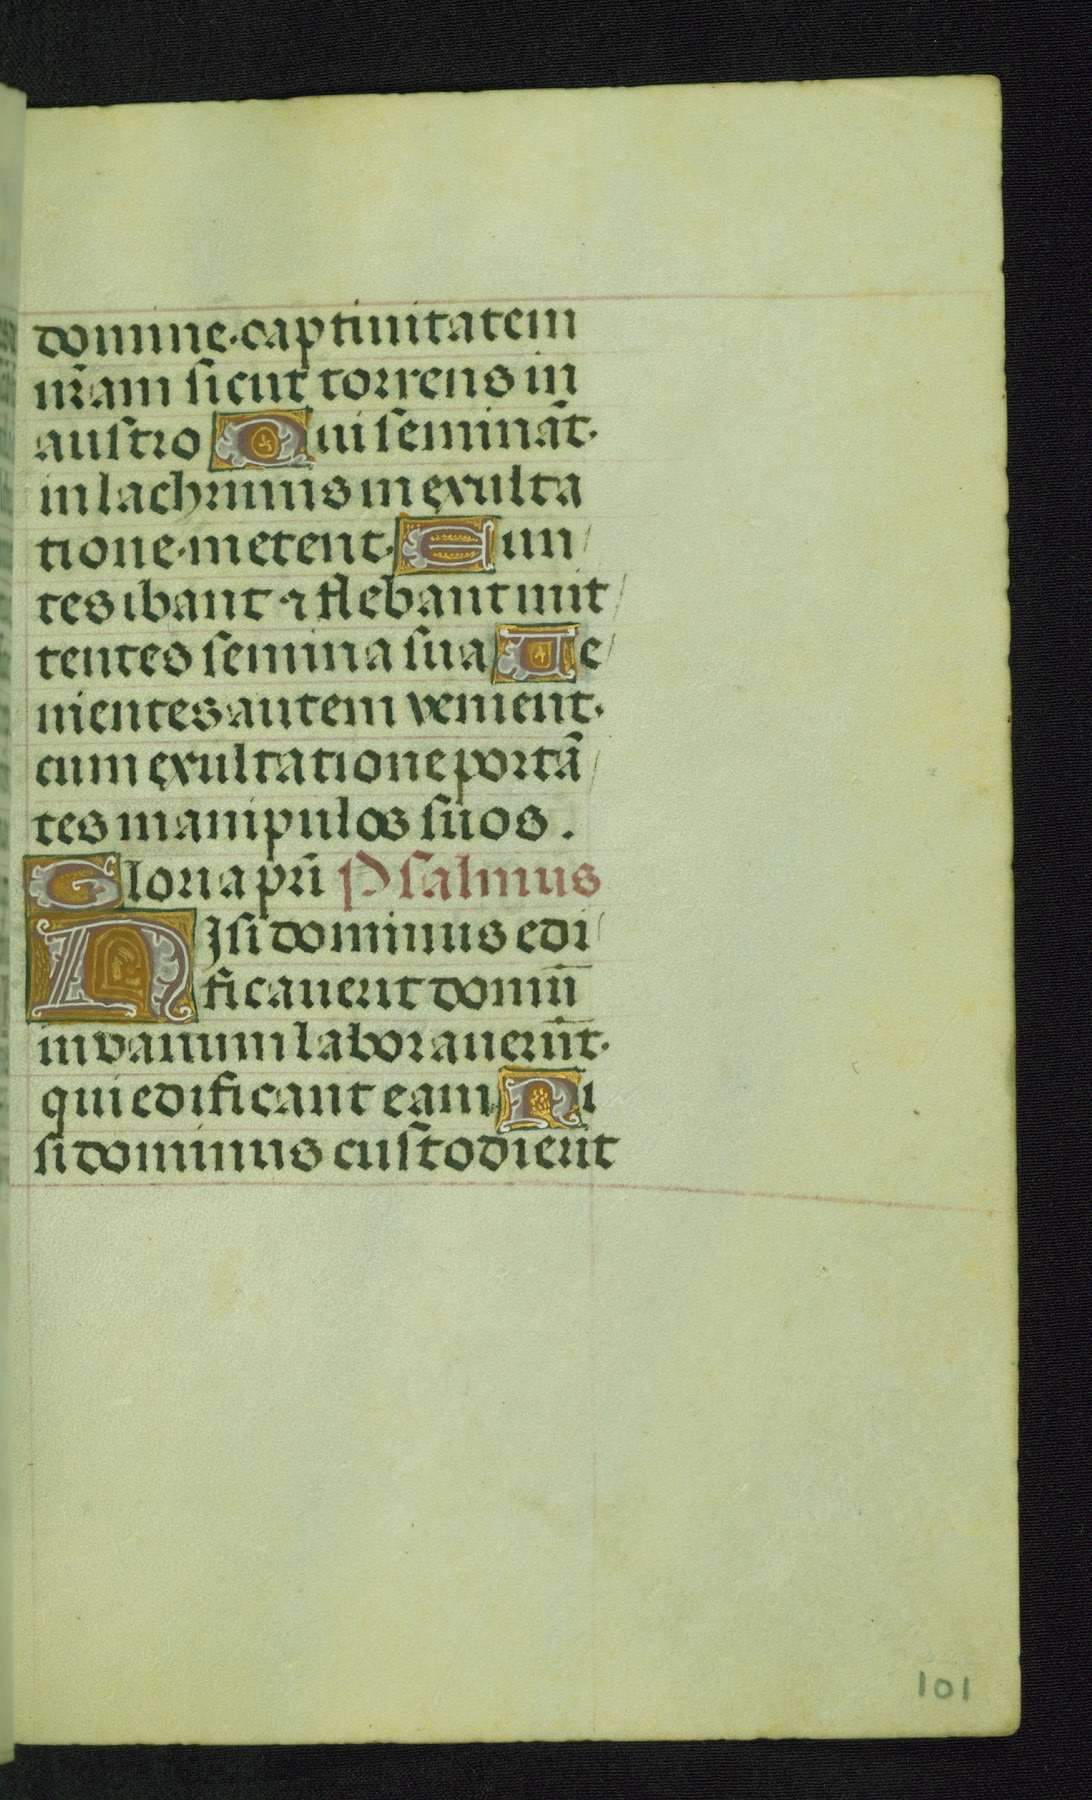 domine·captiuitatem
nr̃am sicut torrens in
austro Qui seminãt·
in lachrimis in exulta
tione·metent· Eun/
tes ibant ⁊ flebant mit/
tentes semina sua Ue/
nientes autem venient·
cum exultatione portã/
tes manipulos suos.
Gloria pr̃i Psalmus
NIsi dominus edi/
ficauerit domũ
in vanum laborauerũt·
qui edificant eam Ni
si dominus custodierit
101